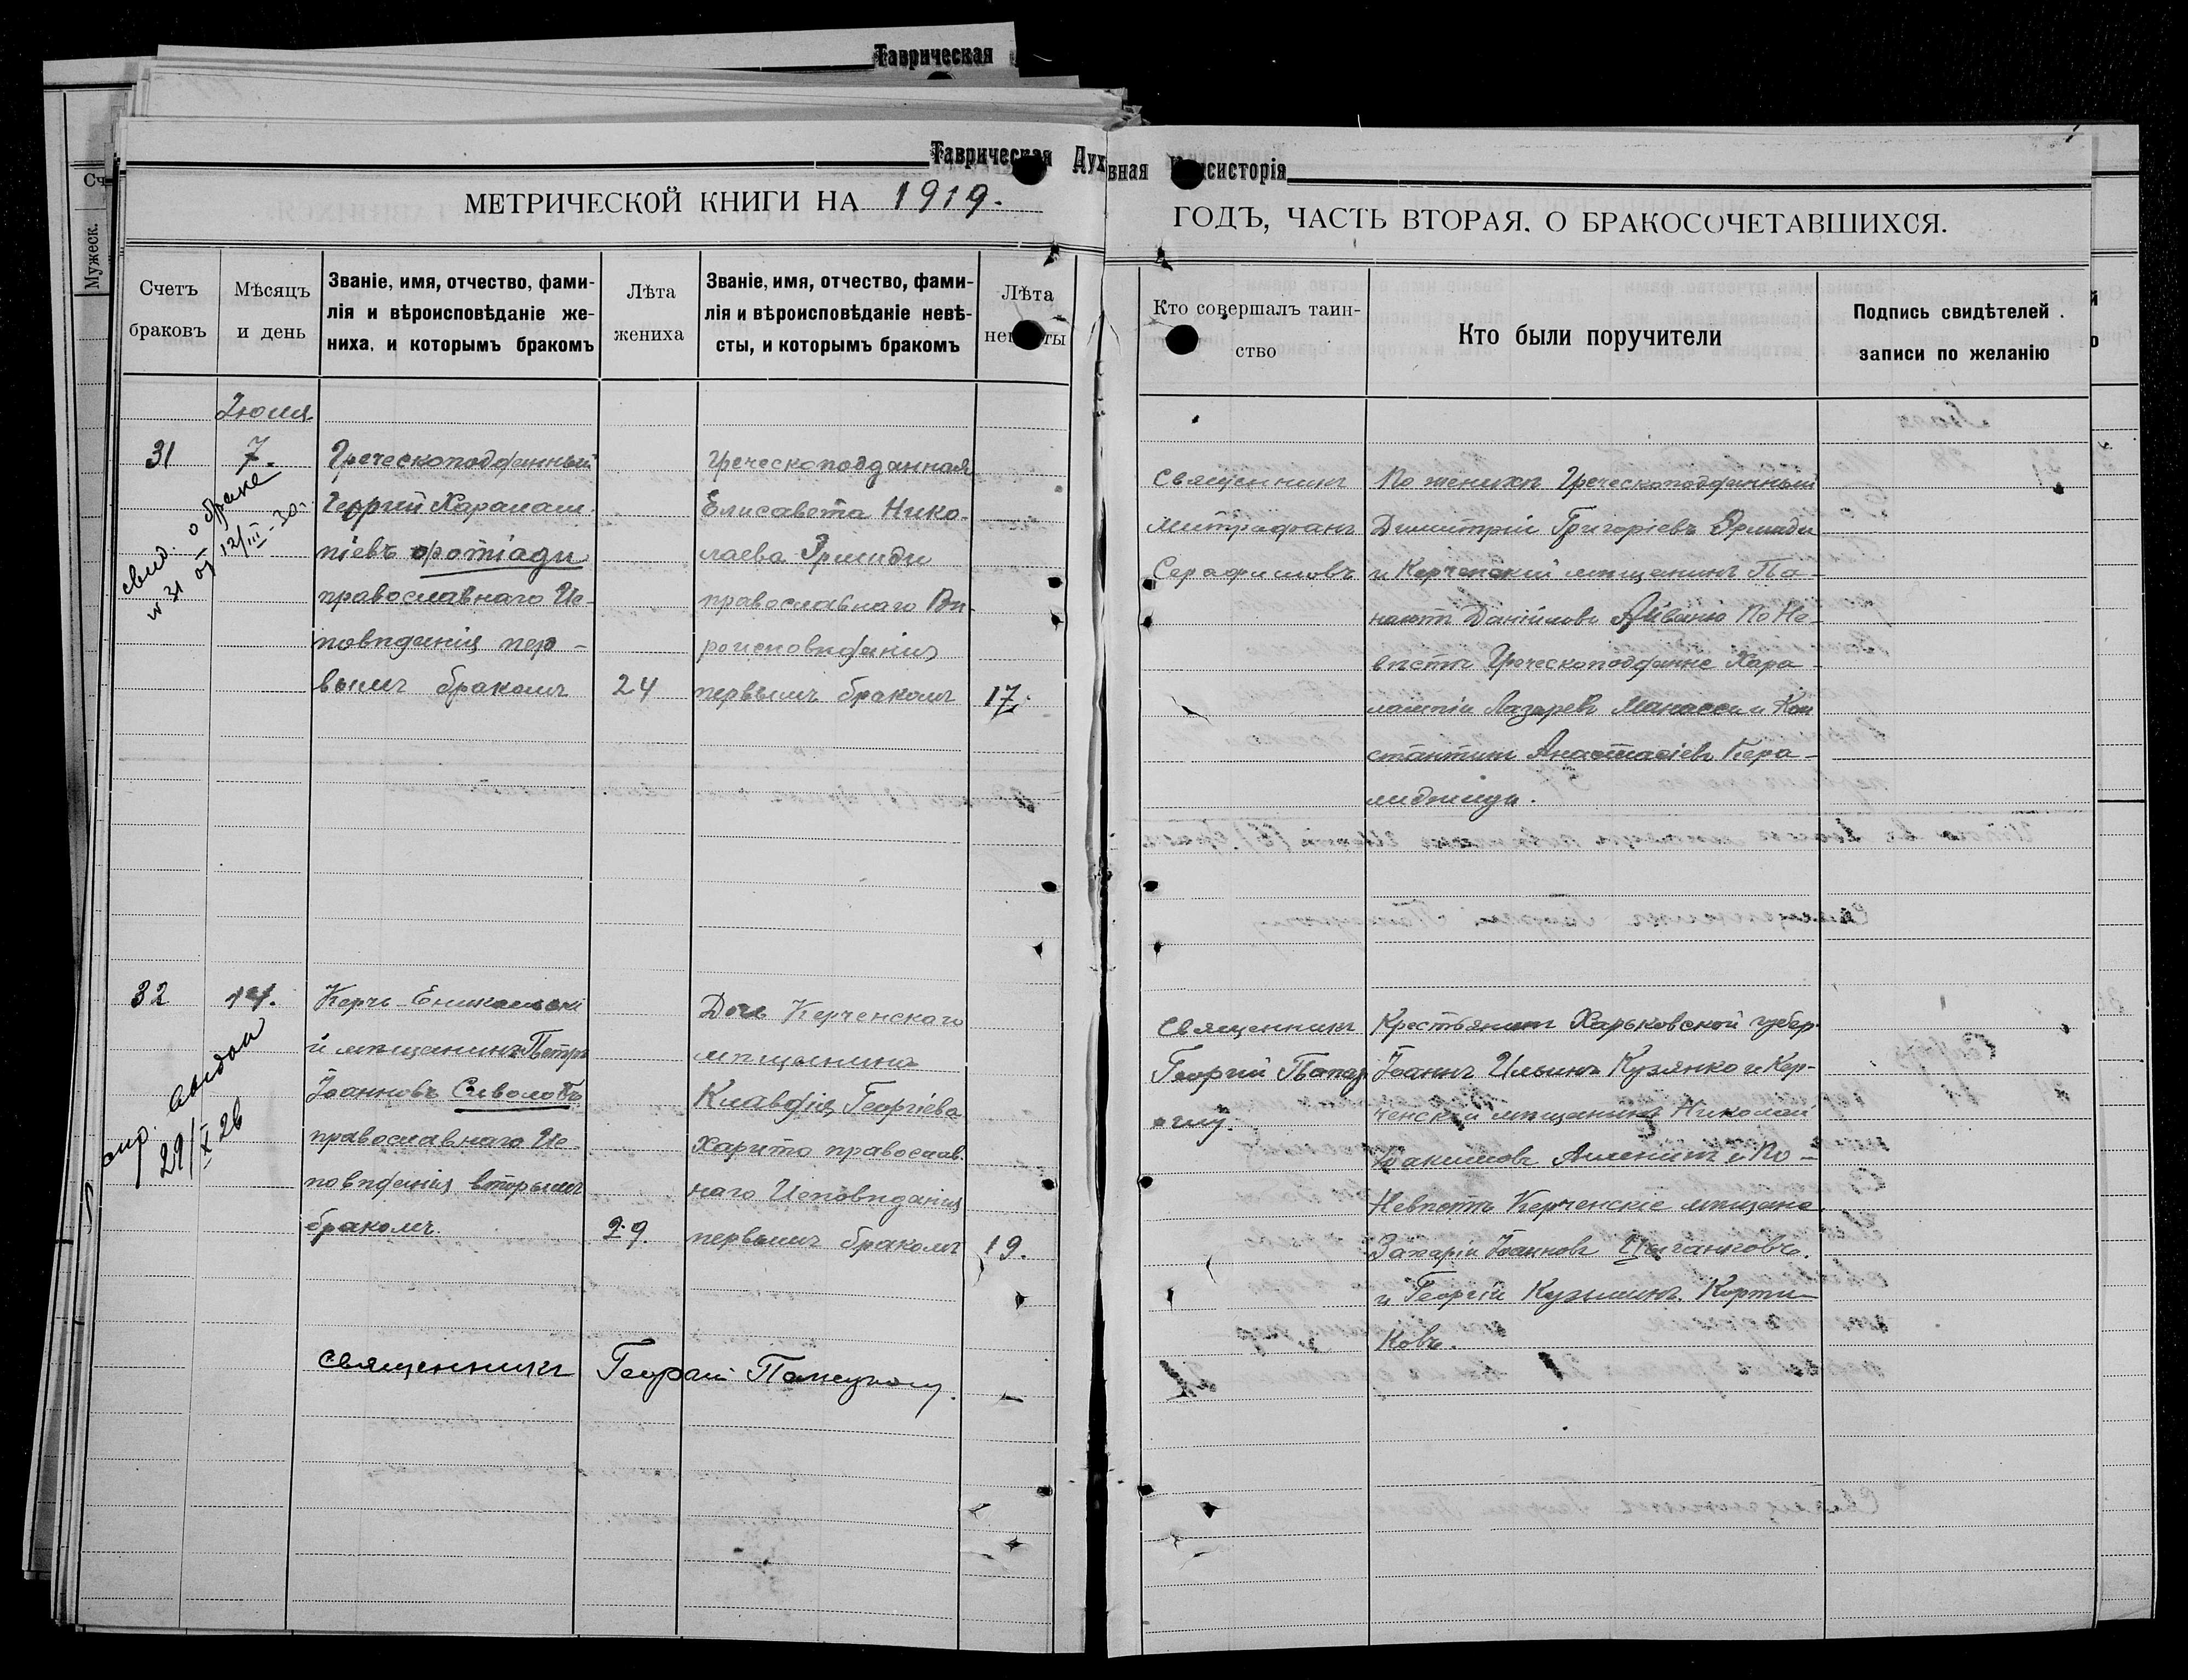 Таврическая
Таврическая Духовная Консисторія
МЕТРИЧЕСКОЙ КНИГИ НА 1919.
ГОДЪ, ЧАСТЬ ВТОРАЯ, О БРАКОСОЧЕТАВШИХСЯ.
Мужеск.
Счетъ
браковъ
Мѣсяцъ
и день
Званіе, имя, отчество, фами-
лія и вѣроисповѣданіе же-
ниха, и которымъ бракомъ
Лѣта
жениха
Званіе, имя, отчество, фами-
лія и вѣроисповѣданіе невѣ-
сты, и которымъ бракомъ
Лѣта
невѣсты
Кто совершалъ таин-
ство
Кто были поручители
Подпись свидѣтелей
записи по желанію
31
7.
свид. о браке
№ 31 от 12/III-30г.
Греческоподданный
Георгій Харалам-
піевъ Фотіади
православнаго Ис-
повѣданія пер-
вымъ бракомъ
24
Греческоподданная
Елисавета Нико-
лаева Эрмиди
православнаго Вѣ-
роисповѣданія
первымъ бракомъ
17.
Священникъ
Митрофанъ
Серафимовъ
По женихѣ Греческоподданный
Димитрій Григоріевъ Эрмиди
и Керченскій мѣщанинъ
Даніиловъ По Не-
вѣстѣ Греческоподданные Хара-
лампій Лазаревъ Манасси и Кон
стантинъ Анастасіевъ Кера-
миджиди.
32
14.
29/X 26
Керчь-Еникальскі
й мѣщанинъ Петръ
Іоанновъ Сиволобъ
православнаго Ис-
повѣданія вторымъ
бракомъ
29.
Дочь Керченскаго
мѣщанина
Клавдія Георгіева
Харито православ.
наго Исповѣданія
первымъ бракомъ
19.
Священникъ
Георгій
Крестьянинъ Харьковской губер.
Іоаннъ Ильинъ Кузянко и Кер-
ченскій мѣщанинъ Николай
Іоакимовъ и По-
Невѣстѣ Керченскіе мѣщане
Захарій Іоанновъ Цыганковъ.
и Георгій Кузьминъ Корти-
ковъ.
Священникъ Георгій